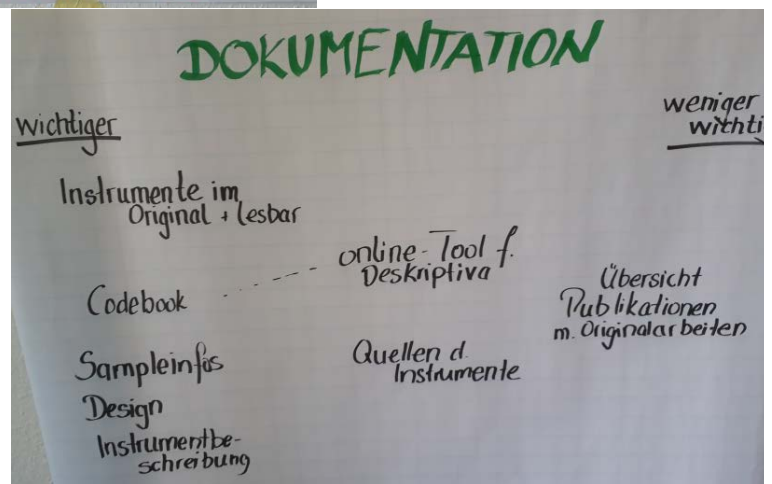 DOKUMENTATION
wichtiger
weniger
withti
Instrumente im
Original + lesbar
Codebook
online-Tool f.
Deskriptiva
Übersicht
Publikationen
m. Originalarbeiten
Sampleinfos
Quellen d.
Instrumente
Design
Instrumentbe-
schreibung